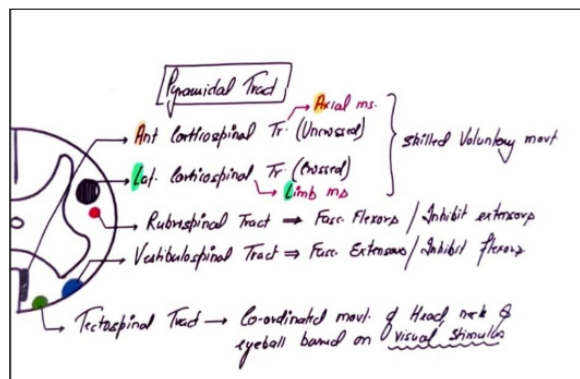 Pyramidal Tract
Axial ms.
Ant Corticospinal Tr. (Uncrossed)
skilled Voluntary movt
Lat. Corticospinal Tr. (Crossed)
Limb ms
Rubrospinal Tract → Fasc. Flexors / Inhibit extensors
Vestibulospinal Tract ⇒ Fasc. Extensors / Inhibit flexors
Tectospinal Tract → Co-ordinated movt. of Head, neck &
eyeball based on visual stimulus